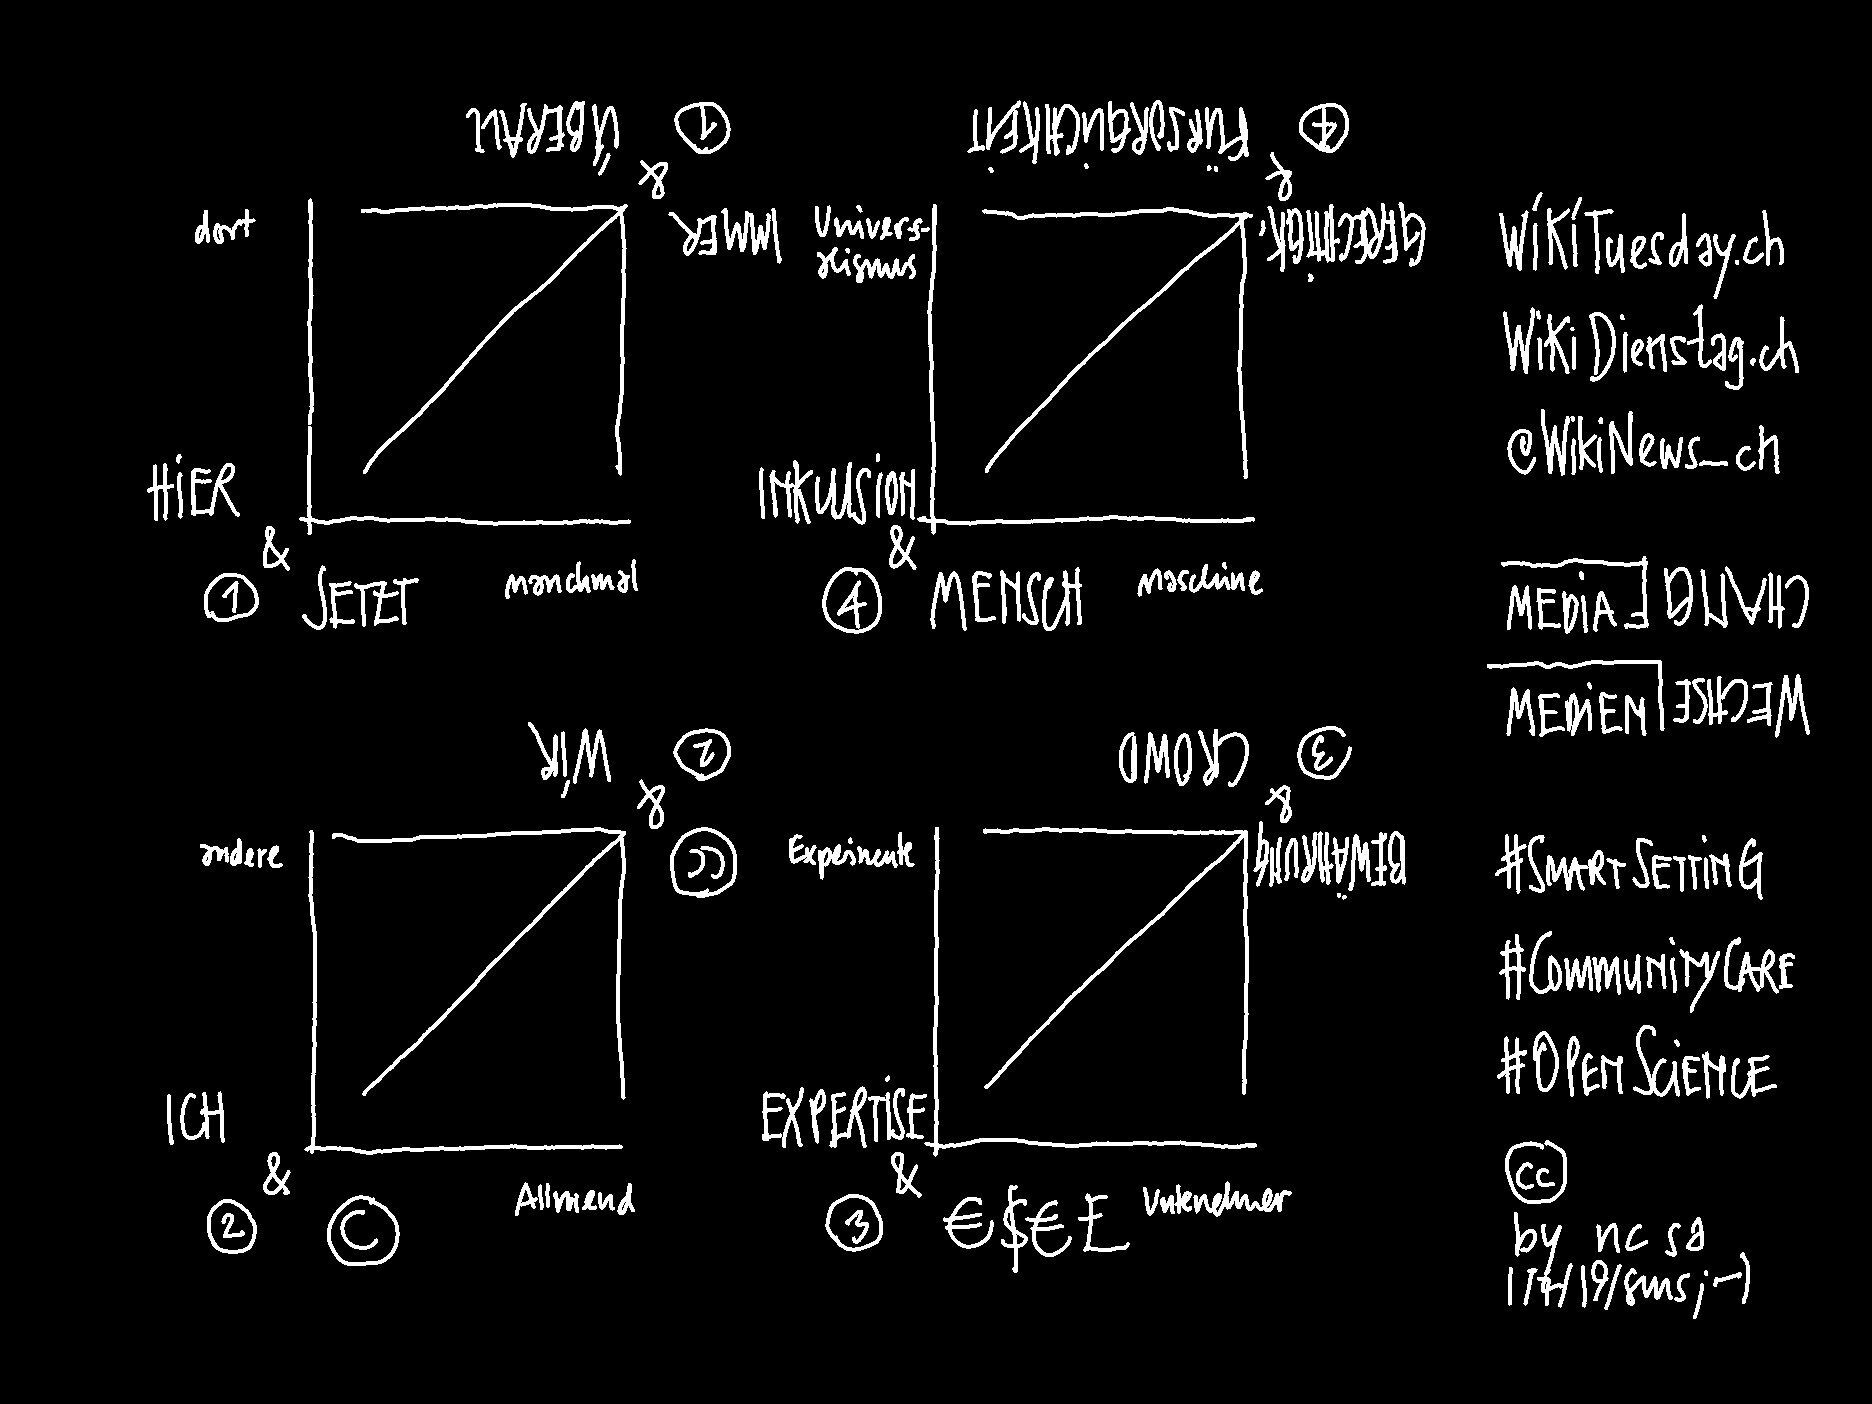 ÜBERALL ①
&
IMMER
dort
HiER
&
① JETZT manchmal
FÜRSORGLICHKEIT ④
&
GERECHTIGK.
Univers-
alismus
INKLUSION
&
④ MENSCH maschine
WiR ②
&
CC
andere
ICH
&
② © Allmend
CROWD ③
&
BEWÄHRUNG
Experimente
EXPERTISE
&
③ €$€£ Unternehmer
WiKiTuesday.ch
WiKiDienstag.ch
@WikiNews_ch
MEDiA CHANGE
MEDiEN WECHSEL
#SMARTSETTiNG
#COMMUNiTYCARE
#OPENSCiENCE
cc
by nc sa
174/19/sms ;-)